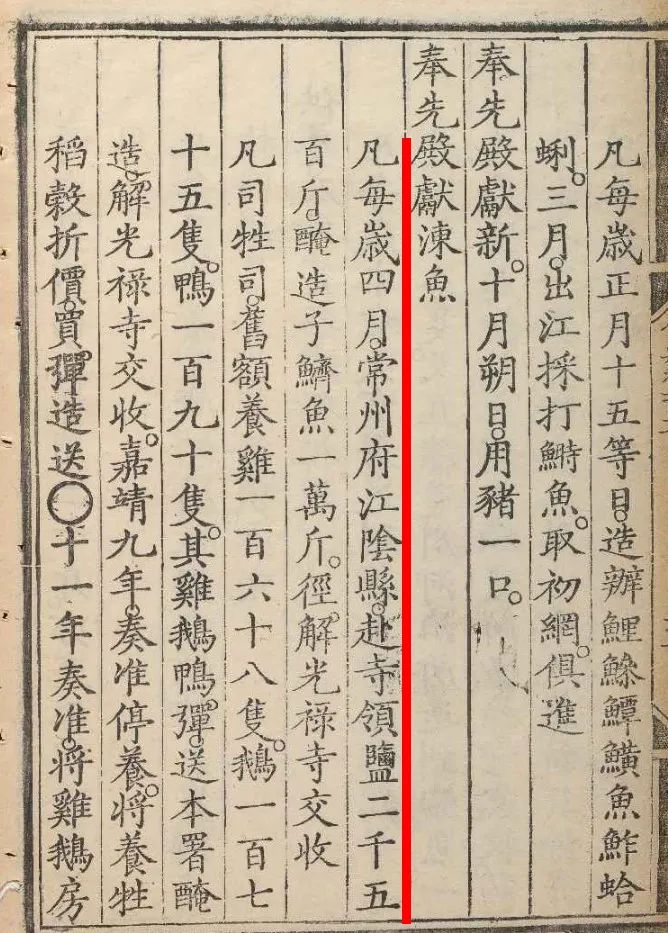 凡每歲正月十五等日。造辦鯉鰺鱏鱑魚鮓蛤
蜊。三月。出江採打鰣魚。取初網。俱進
奉先殿獻新。十月朔日。用豬一口。
奉先殿獻涷魚
凡每歲四月。常州府江陰縣。赴寺領鹽二千五
百斤。醃造子鱭魚一萬斤。徑解光祿寺交收
凡司牲司。舊額養雞一百六十八隻。鵝一百七
十五隻。鴨一百九十隻。其雞鵝鴨。彈送本署醃
造。解光祿寺交收。嘉靖九年。奏准停養。將養牲
稻穀折價。買彈造送〇十一年奏准。將雞鵝房